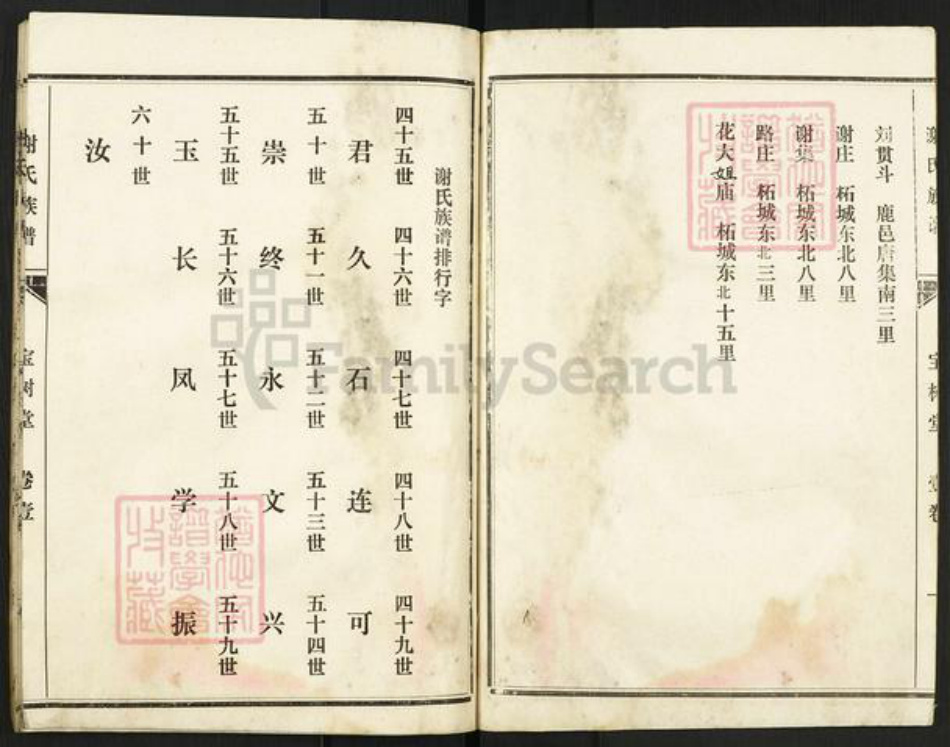 谢氏族谱
宝树堂
壹卷
刘贯斗 鹿邑唐集南三里
谢庄 柘城东北八里
谢集 柘城东北八里
路庄 柘城东北三里
花大姐庙 柘城东北十五里
谢氏族谱排行字
四十五世 四十六世 四十七世 四十八世 四十九世
君 久 石 连 可
五十世 五十一世 五十二世 五十三世 五十四世
崇 终 永 文 兴
五十五世 五十六世 五十七世 五十八世 五十九世
玉 长 凤 学 振
六十世
汝
谢氏族谱
宝树堂
卷壹
FamilySearch